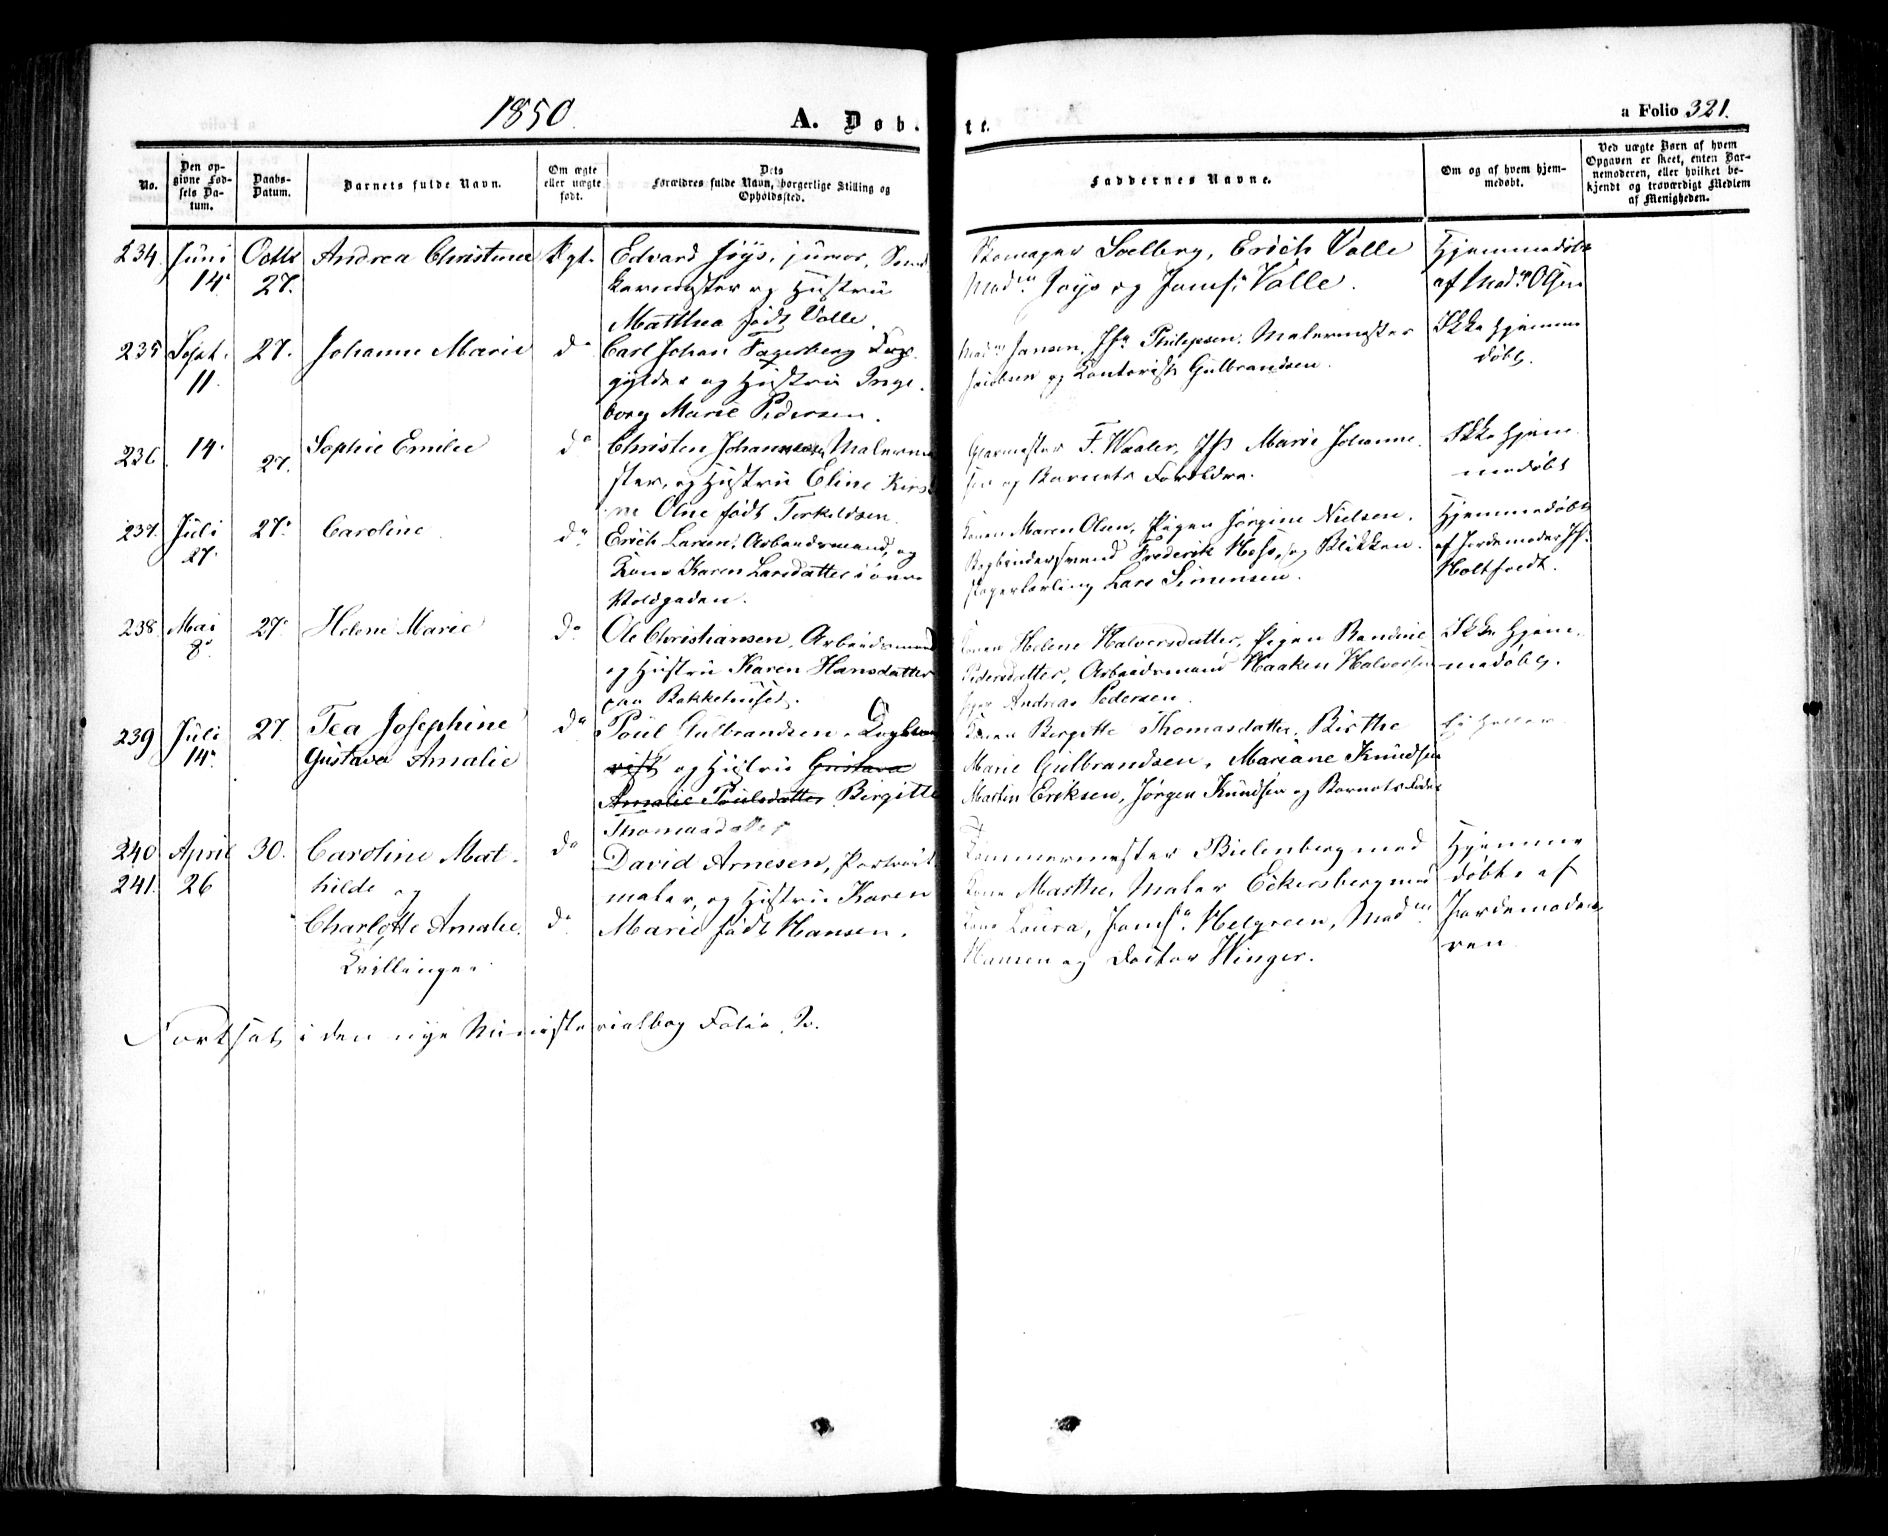 1850.
A. Døbte.
a Folio 321.
No.
Den opgivne Fødsels Datum.
Daabs-Datum.
Barnets fulde Navn.
Om ægte eller uægte født.
Dets Forældres fulde Navn, borgerlige Stilling og Opholdssted.
Faddernes Navne.
Om og af hvem hjemmedøbt.
Ved uægte Børn af hvem Opgaven er skeet, enten Barnemoderen, eller hvilket bekjendt og troværdigt Medlem af Menigheden.
234. Juni 14. Octbr 27. Andrea Christine Ægt. Edvard junior,
kermester og Hustru
Matthea født Valle.
Skomager Soelberg, Erich Valle
og Jomf. Valle.
Hjemmedøbt
af Mad.
235 Sept. 11. 27. Johanne Marie do Carl Johan Fagerberg
og Hustru Inge-
borg Marie Pedersen.
Jansen, Philipsen, Malermester
og Contorist Gulbrandsen.
Ikke hjemme
døbt.
236 14. 27. Sophie Emilie do Christen Johannesen, Malerme
ster, og Hustru Eline Kirst
ne Olne født Terkeldsen.
Glarmester F. Waaler, Marie Johanne
sen og Barnets Forældre.
Ikke hjem-
medøbt
237. Juli 27. 27. Caroline do Erich Larsen, Arbeidsmand, og
Kone Karen Larsdatter i øvre
Voldgaden.
Konen Maren Olsen, Pigen Jørgine Nielsen,
Bogbindersvend Frederik Hess, og Blikken-
slagerlærling Lars Simensen.
Hjemmedøbt
af Jordemoder
Holtfodt.
238 Mai 8. 27. Helene Marie do Ole Christiansen, Arbeidsmand
og Hustru Karen Hansdatter
paa Bakkehuset.
Konen Helene Halvorsdatter, Pigen Randine
Pedersdatter, Arbeidsmand Haaken Halvorsen
og Andreas Pedersen.
Ikke hjem-
medøbt.
239 Juli 14. 27. Tea Josephine
Gustava Amalie do Poul Gulbrandsen,
og Hustru Gustava
Amalie Poulsdatter Birgitte
Thomasdatter
Konen Birgitte Thomasdatter, Birthe
Marie Gulbrandsen, Mariane Knudsen
Martin Eriksen, Jørgen Knudsen og Barnets Fader
Ei heller
240 April 30. Caroline Mat- do David Arnesen, Portrait
241. 26 hilde og
maler, og Hustru Karen
Charlotte Amalie. do Marie født Hansen.
Tvillinger
Tømmermester Bielenberg med
Kone Marthe, Maler Eckersberg med
Kone Laura, Jomf. Helgreen, Mad.
Hansen og Doctor Winger.
Hjemme
døbte af
Jordemode-
ren
Fortsat i den nye Ministerialbog Folio